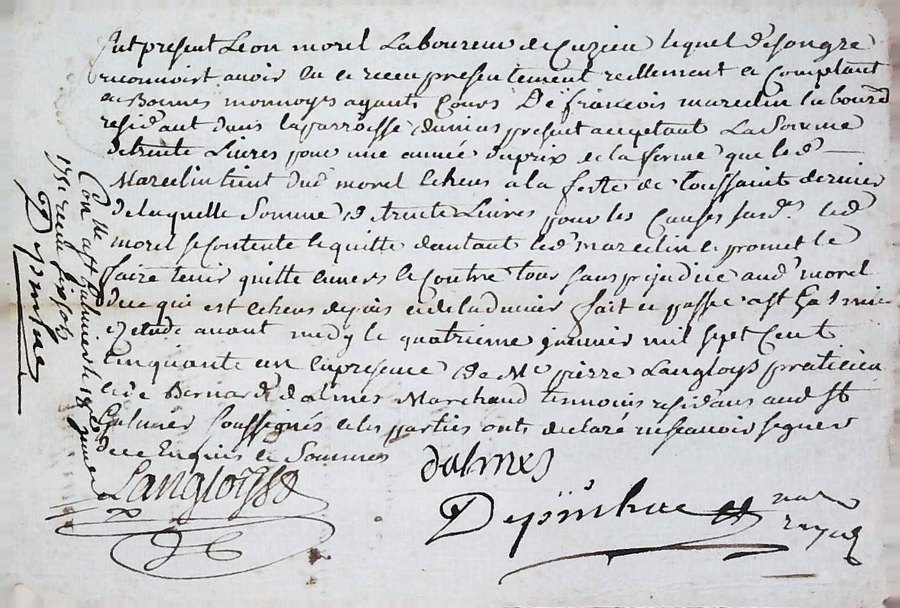 fut present Leon morel Laboureur de Cuzieu lequel de son gre
reconnoist avoir eu et receu presentement reellement et Comptant
en Bonnes monnoyes ayants Cours De francois marcelin laboure
residant dans la parroisse present acceptant La Somme
de trente Livres pour une année du prix de la ferme que led
Marcelin tient dud morel Echeue a la feste de Toussaint dernier
de laquelle Somme de trente Livres pour les Causes susd led
morel se Contente et quitte d'autant led marcelin et promet le
faire tenir quitte envers et Contre Tous sans prejudice aud morel
de ce qui est Echeu depuis fait et passé a St Galmier
Etude avant midy le quatrieme janvier mil sept Cent
Cinquante un En presence De Me pierre Langloys praticien
et de Bernard dalmes Marchand temoins residans aud St
Galmier Soussignés et les parties onts declaré ne scavoir signer
de ce Enquis et Sommes
dalmes
Langloys
not
royal
Conlle a St galmier le janvier
1751 receu